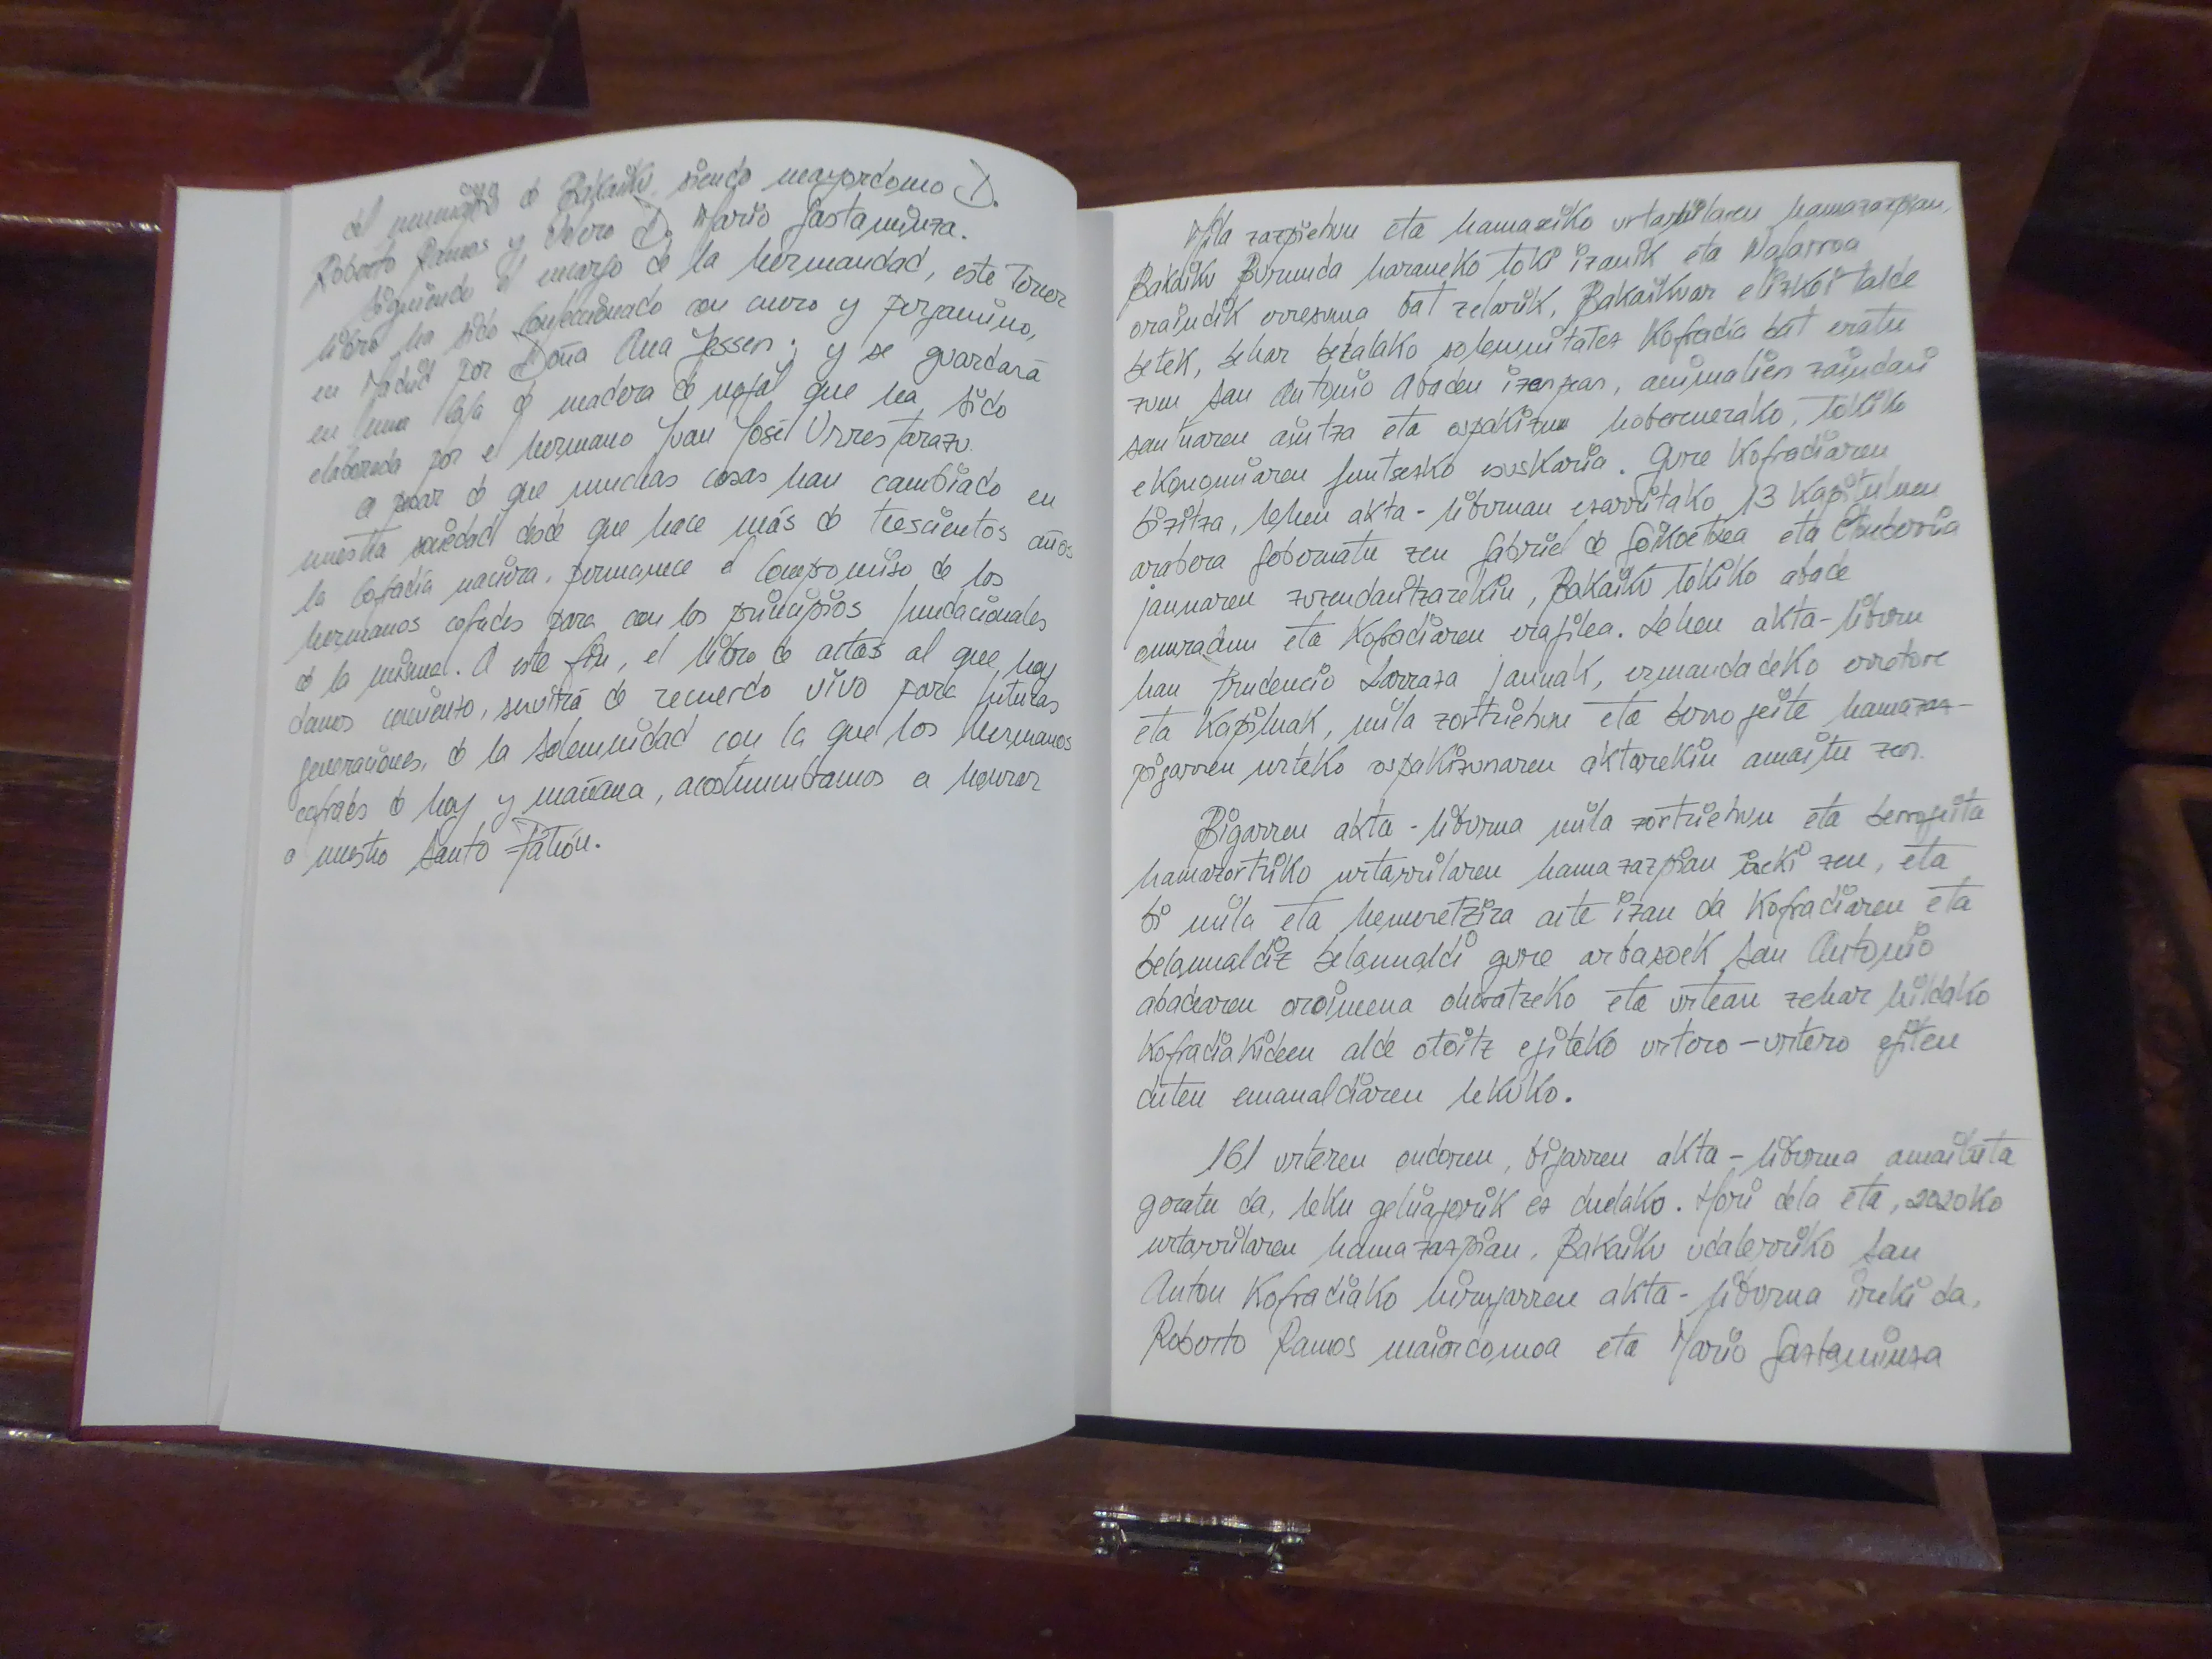 del municipio de Bakaiku, siendo mayordomo D.
Roberto Ramos y clavero D. Mario Gastaminza.
Siguiendo el encargo de la hermandad, este tercer
libro ha sido confeccionado con cuero y pergamino,
en Madrid por Doña Ana Jessen; y se guardará
en una caja de madera de nogal que ha sido
elaborada por el hermano Juan José Urrestarazu.
A pesar de que muchas cosas han cambiado en
nuestra sociedad desde que hace más de trescientos años
la Cofradía naciera, permanece el compromiso de los
hermanos cofrades para con los principios fundacionales
de la misma. A este fin, el libro de actas al que hoy
damos comienzo, servirá de recuerdo vivo para futuras
generaciones, de la solemnidad con la que los hermanos
cofrades de hoy y mañana, acostumbramos a honrar
a nuestro Santo Patrón.
Mila zazpiehun eta hamaseiko urtarrilaren hamazazpian,
Bakaiku Burunda haraneko toki izanik eta Nafarroa
oraindik erresuma bat zelarik, Bakaikuar elizkoi talde
batek, behar bezalako solemnitatez Kofradia bat eratu
zuen San Antonio Abaden izenpean, animalien zaindari
santuaren aintza eta ospakizun hoberenerako, tokiko
ekonomiaren funtsezko euskarria. Gure Kofradiaren
bizitza, lehen akta-liburuan ezarritako 13 Kapituluen
arabera gobernatu zen Gabriel de Goikoetxea eta Etxeberria
jaunaren zuzendaritzarekin, Bakaiku tokiko abade
ohoradun eta Kofradiaren eragilea. Lehen akta-liburu
hau Prudencio Larraza jaunak, ermandadeko erretore
eta Kapilauak, mila zortziehun eta berrogeita hamazaz-
pigarren urteko ospakizunaren aktarekin amaitu zen.
Bigarren akta-liburua mila zortziehun eta berrogeita
hamazortziko urtarrilaren hamazazpian ireki zen, eta
bi mila eta hemeretzira arte izan da Kofradiaren eta
belaunaldiz belaunaldi gure arbasoek San Antonio
abadearen oroimena ohoratzeko eta urtean zehar hildako
Kofradiakideen alde otoitz egiteko urtero-urtero egiten
duten emanaldiaren lekuko.
161 urteren ondoren, bigarren akta-liburua amaituta
geratu da, leku gehiagorik ez duelako. Hori dela eta, 2020ko
urtarrilaren hamazazpian, Bakaiku udalerriko San
Anton Kofradiako hirugarren akta-liburua ireki da,
Roberto Ramos maiordomoa eta Mario Gaztaminza